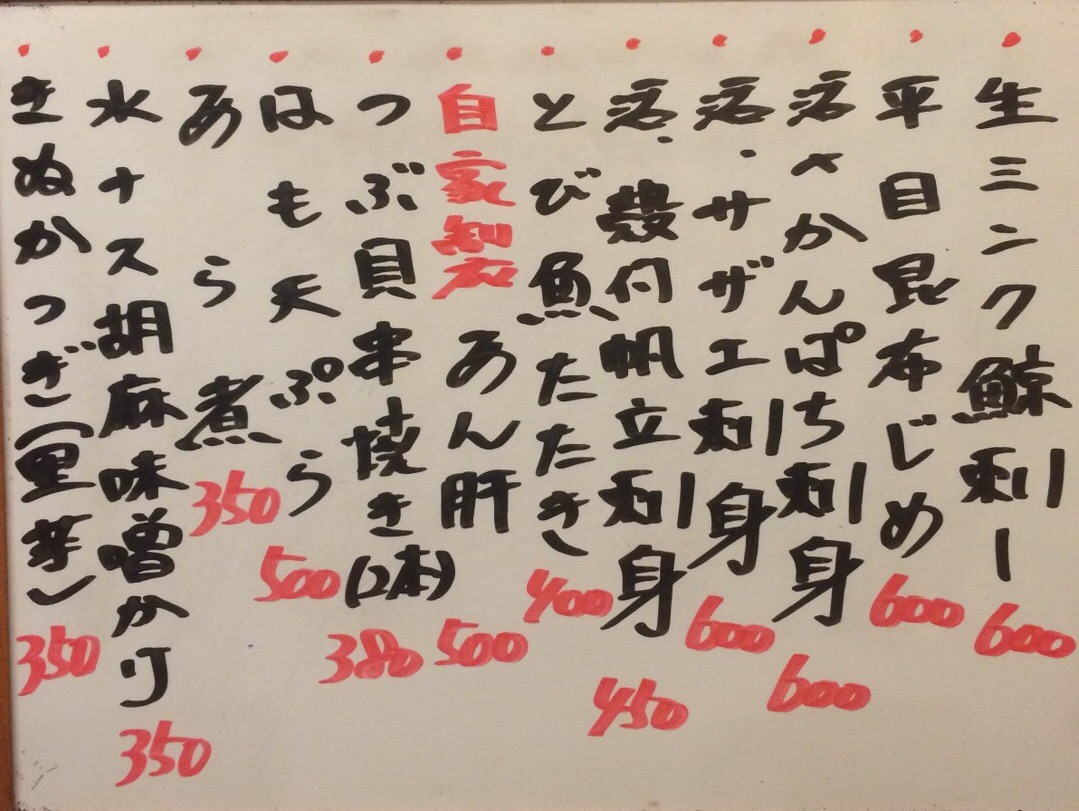 生ミンク鯨刺し 600
平目昆布じめ 600
活・かんぱち刺身 600
活・サザエ刺身 600
活・殻付帆立刺身 450
とび魚たたき 400
自家製 あん肝 500
つぶ貝串焼き(2本) 380
はも天ぷら 500
あら煮 350
水ナス胡麻味噌かけ 350
きぬかつぎ(里芋) 350